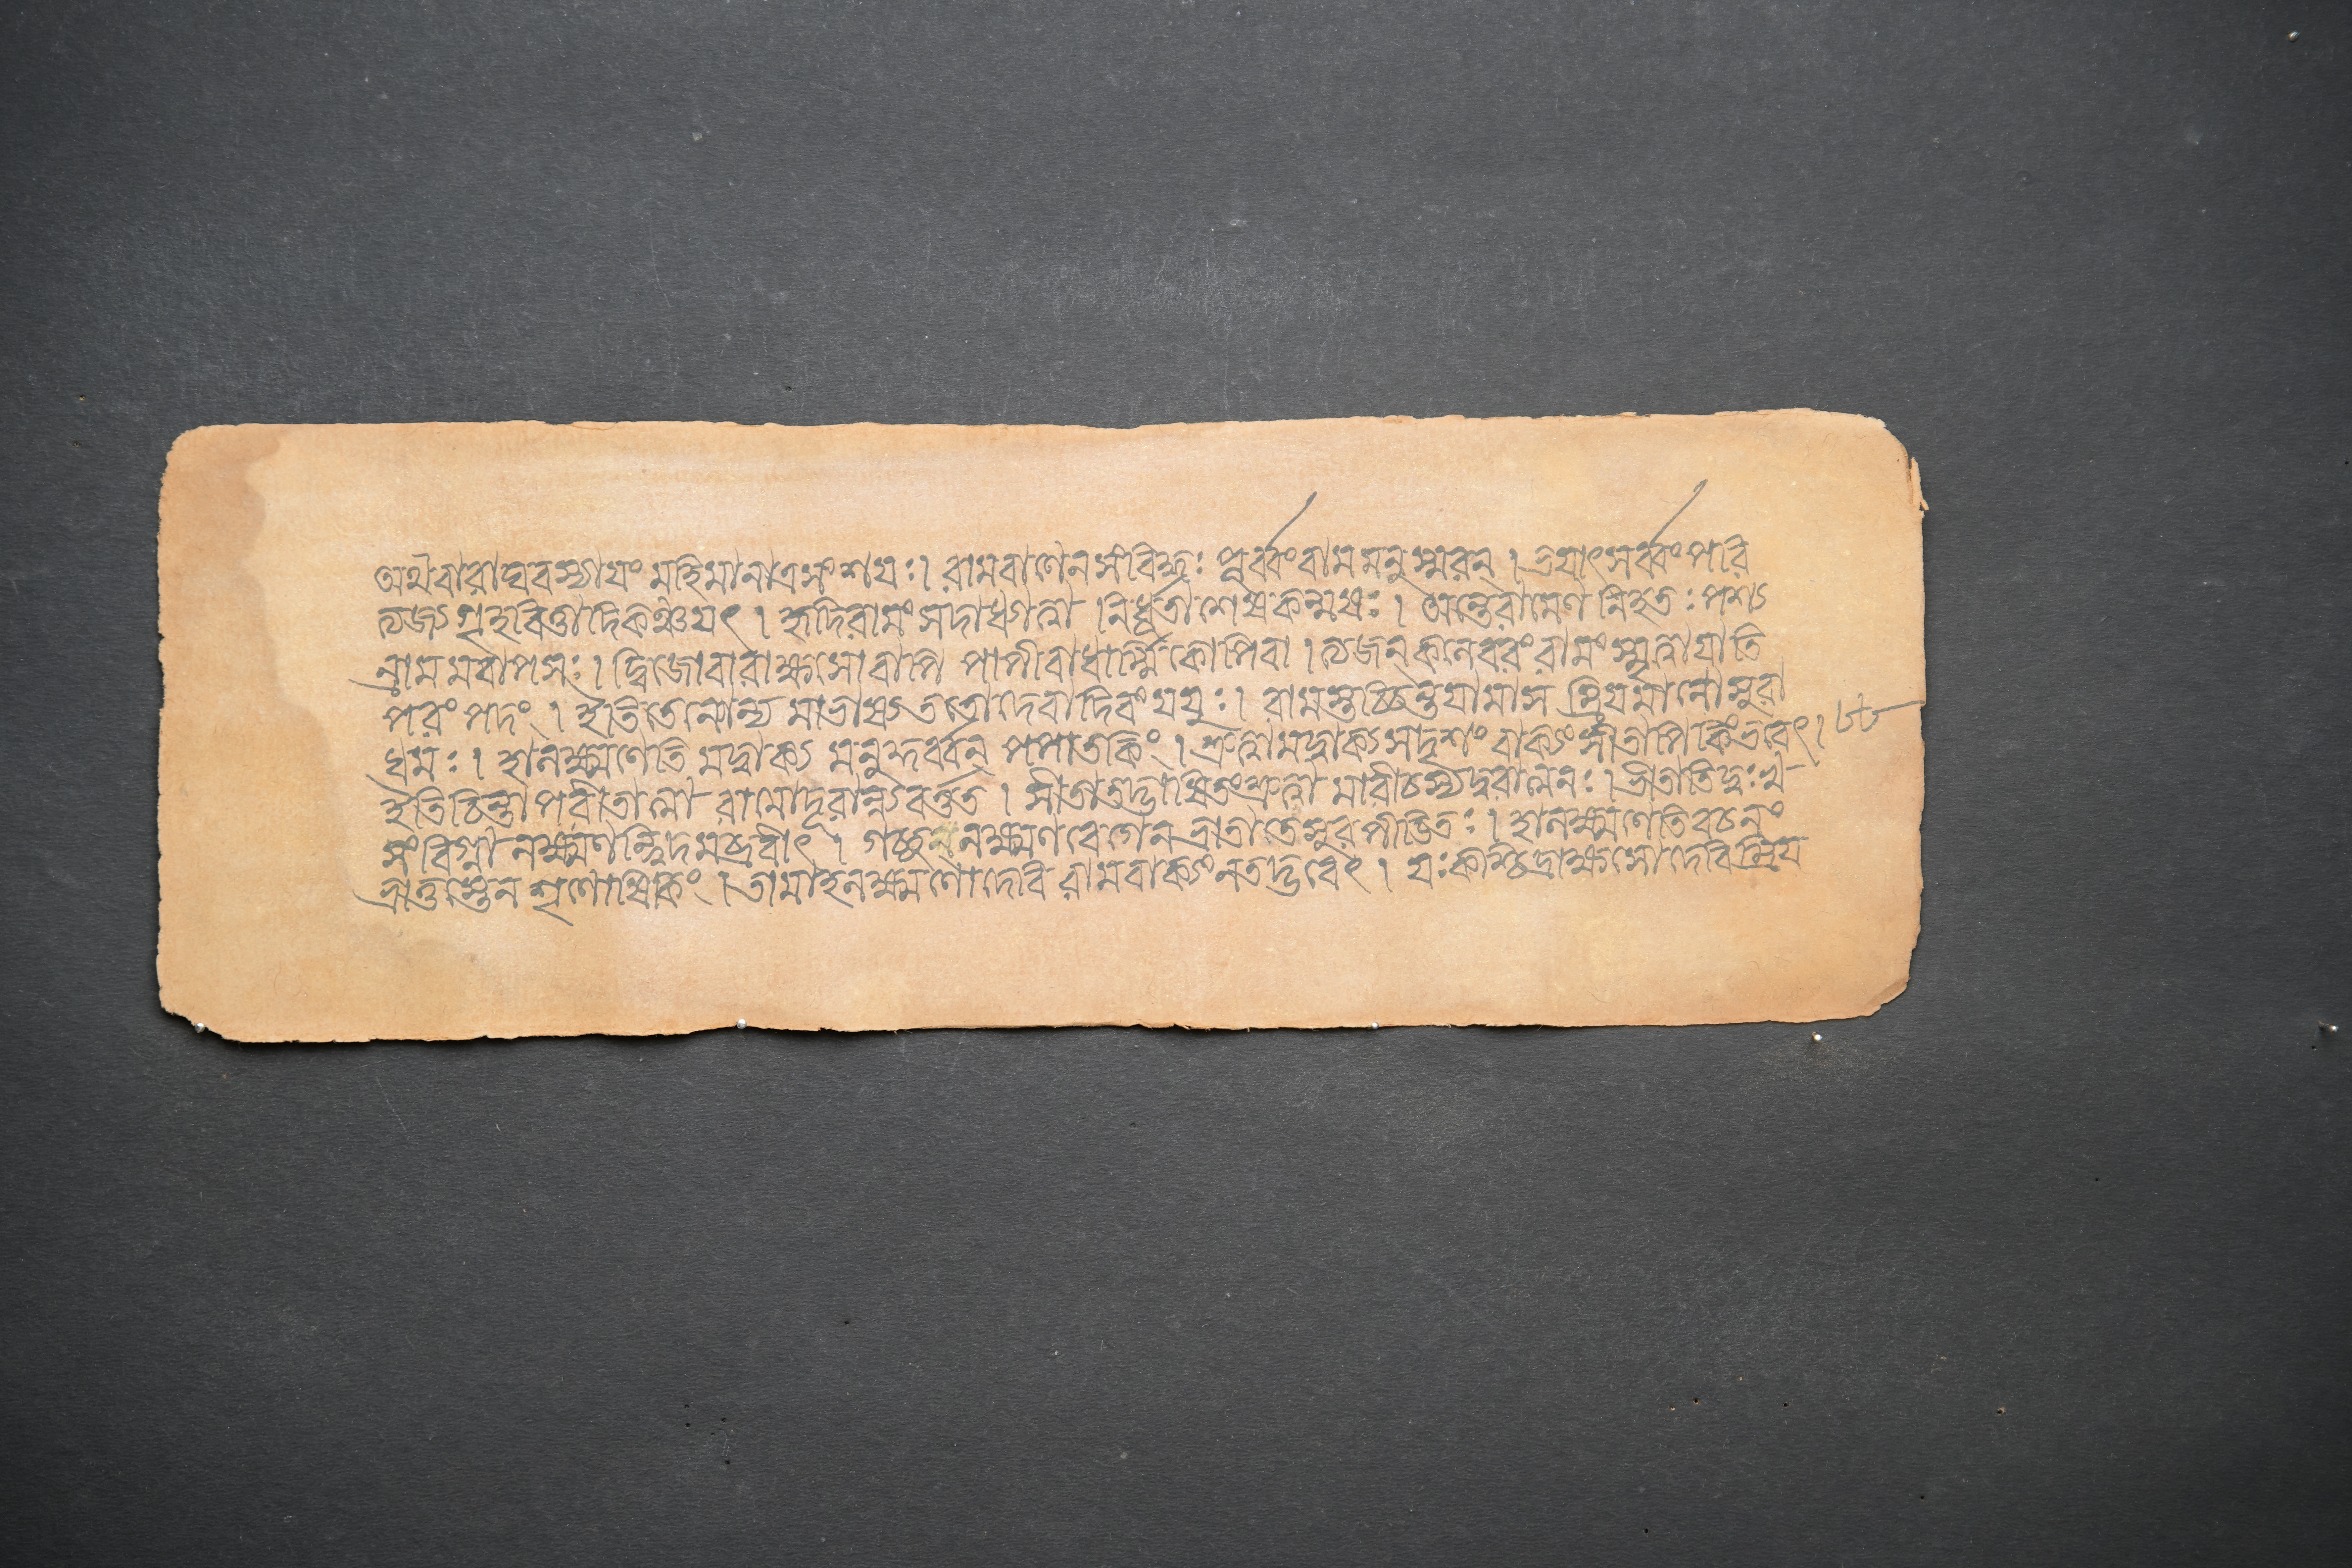 অথবারাঘবস্যায়ং মহিমানাত্রসংশয়ঃ। রামবাণেনসংবিদ্ধঃ পূর্ব্বংরামমনুস্মরন্। ভয়াৎসর্ব্বংপরি
ত্যজ্যগৃহবিত্তাদিকঞ্চয়ৎ। হৃদিরামং সদাধ্যাত্বা নির্ধূতাশেষকল্মষঃ। অন্তেরামেণ নিহতঃ পশ্য
ন্রামমবাপসঃ। দ্বিজোবারাক্ষসোবাপি পাপীবাধার্ম্মিকোপিবা। ত্যজন্কলেবরং রামং স্মৃত্বাযাতি
পরং পদং। ইতিতেন্যোন্য মাভাষ্যততোদেবাদিবং যযুঃ। রামস্তচ্চিন্তযামাস ম্রিয়মানোসুরা
ধমঃ। হালক্ষ্মণেতি মদ্বাক্য মনুকুর্ব্বন্ পপাতকিং। শ্রুত্বামদ্বাক্যসদৃশং বাক্যং সীতাপিকিংভবেৎ। ৮৮
ইতিচিন্তাপরীতাত্মা রামোদূরান্ন্যবর্ত্তত। সীতাতদ্ভাষিতংশ্রুত্বা মারীচস্যদুরাত্মনঃ। ভীতাতিদুঃখ
সংবিগ্না লক্ষ্মণন্ত্বিদমব্রবীৎ। গচ্ছলক্ষ্মণবেগেন ভ্রাতাতেসুরপীড়িতঃ। হালক্ষ্মণেতিবচনং
ভ্রাতুস্তেন শৃণোষিকিং। তামাহলক্ষ্মণোদেবি রামবাক্যংনতদ্ভবেৎ। যঃকশ্চিদ্রাক্ষসোদেবিম্রিয়